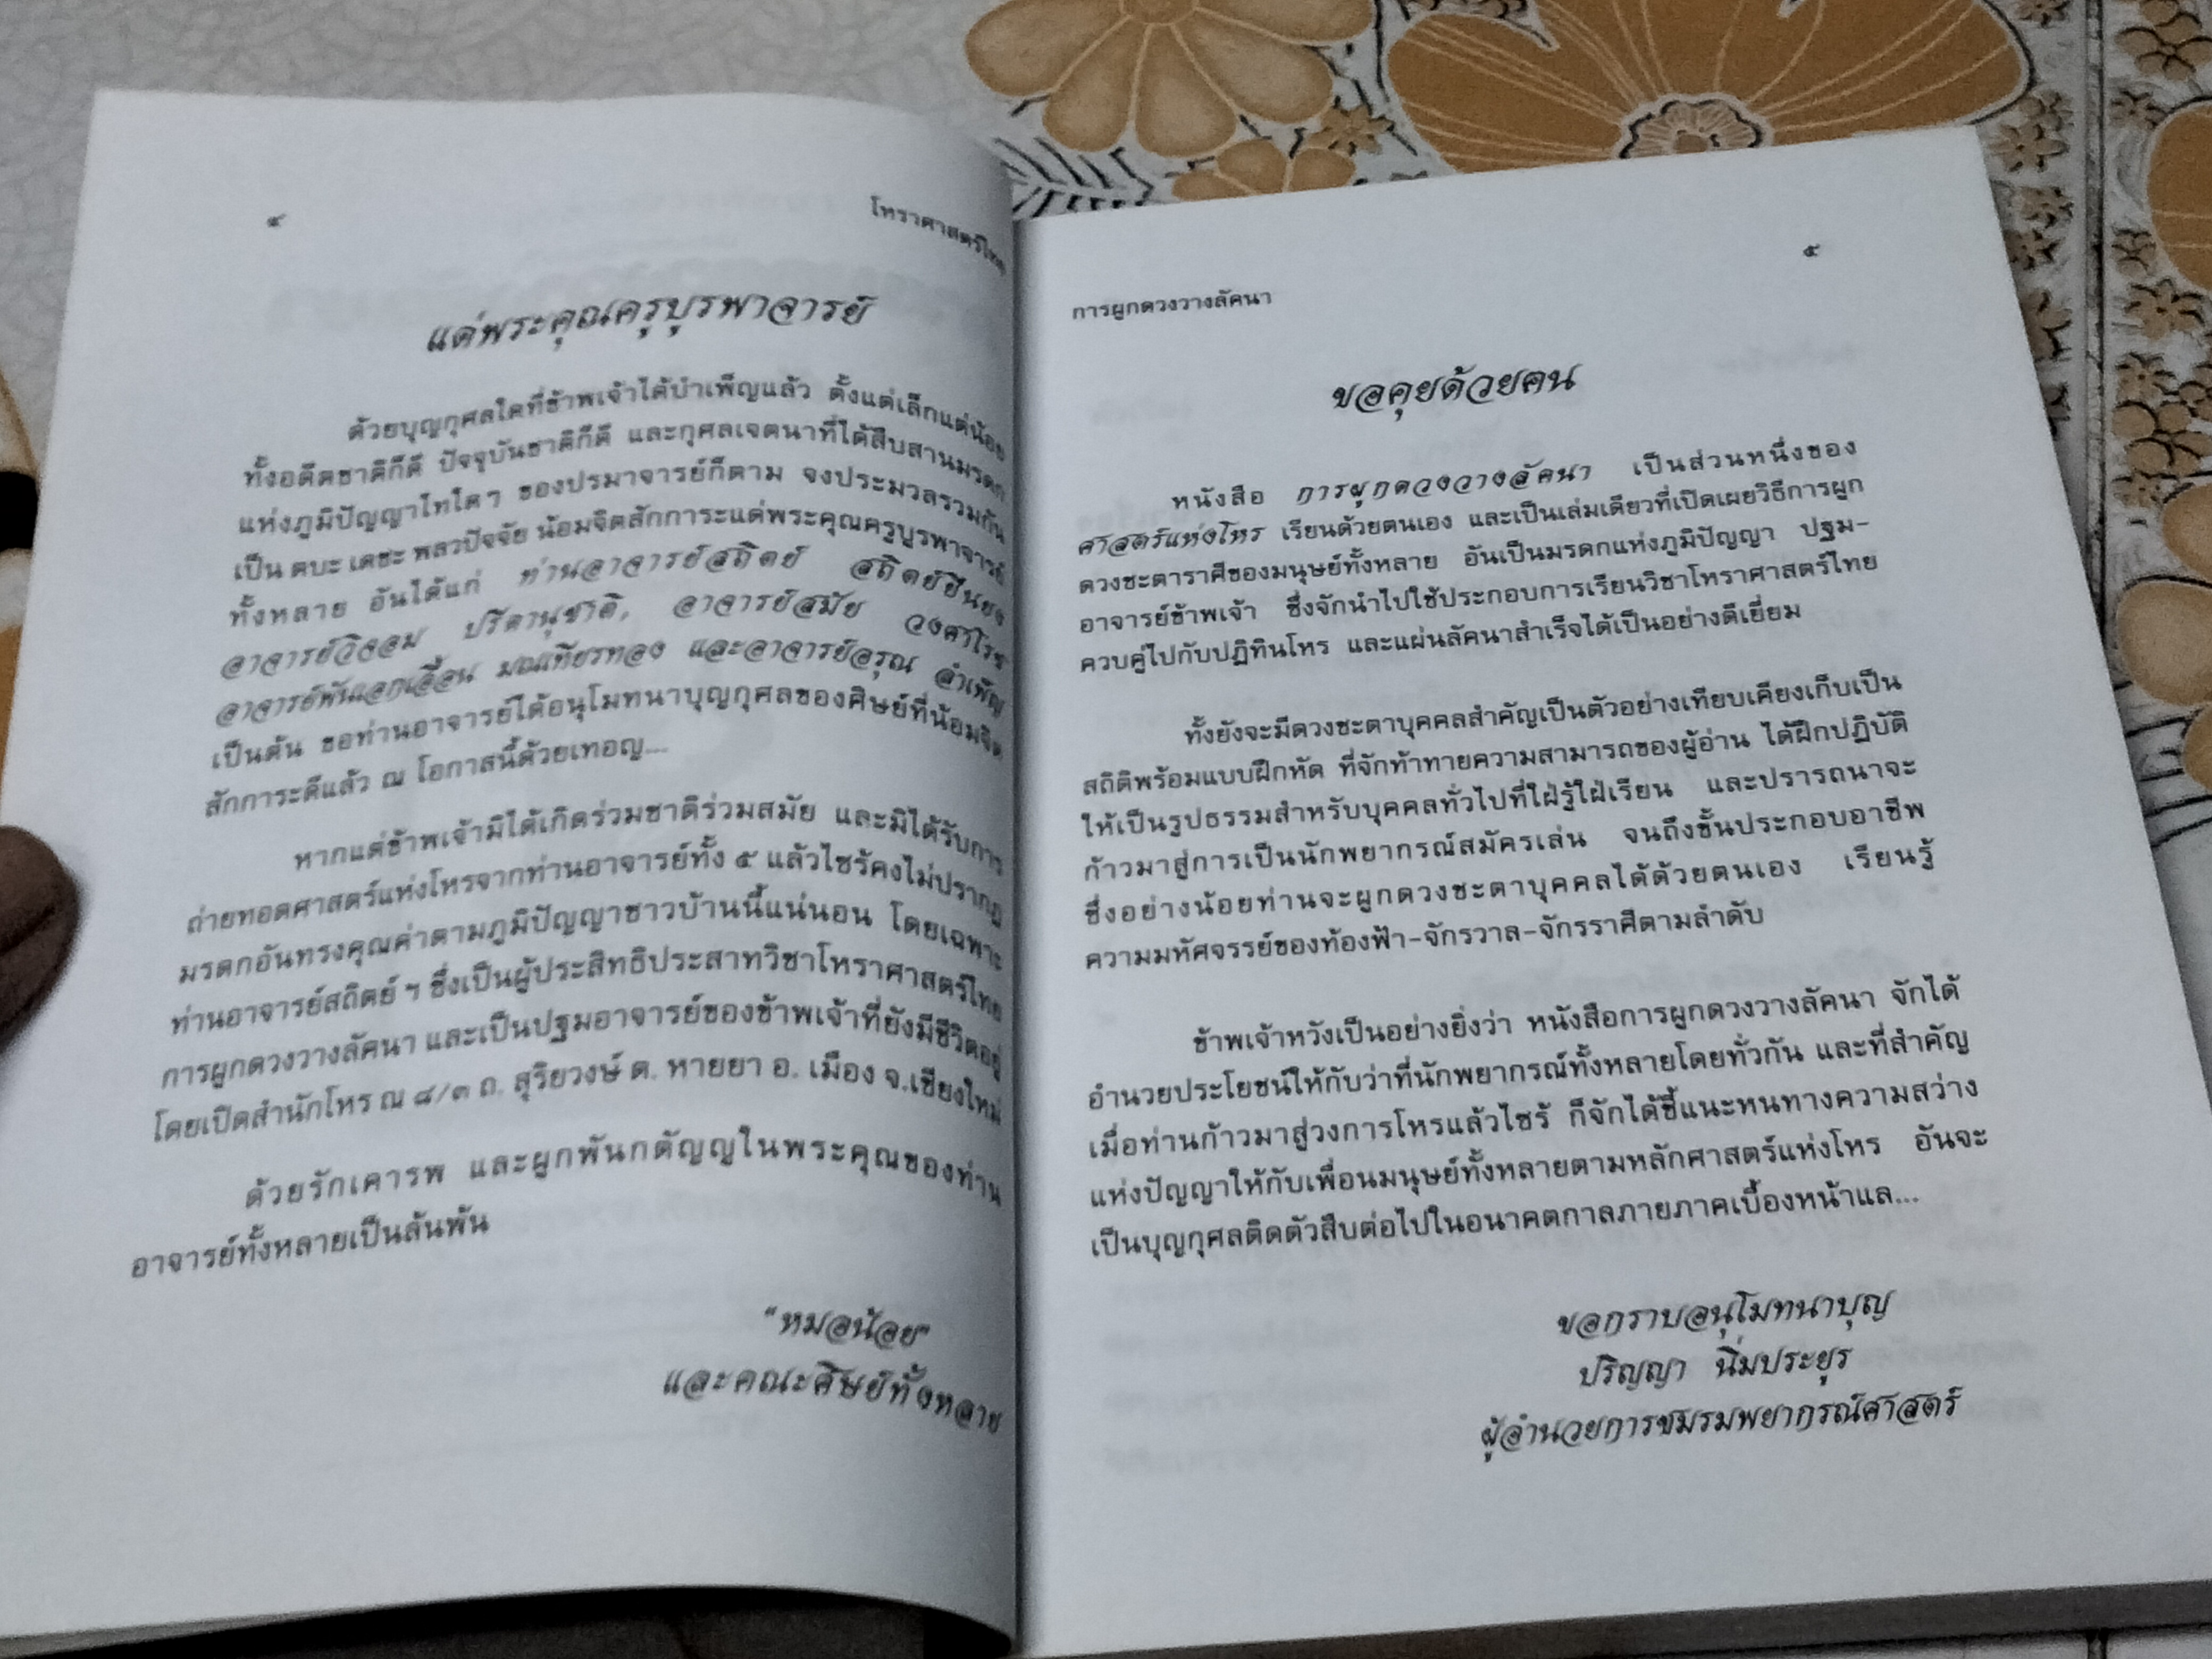 ๔
โหราศาสตร์ไทย
แด่พระคุณครูบูรพาจารย์
ด้วยบุญกุศลใดที่ข้าพเจ้าได้บำเพ็ญแล้ว ตั้งแต่เล็กแต่น้อย
ทั้งอดีตชาติก็ดี ปัจจุบันชาติก็ดี และกุศลเจตนาที่ได้สืบสานมรดก
แห่งภูมิปัญญาไทใดๆ ของปรมาจารย์ก็ตาม จงประมวลรวมกัน
เป็น ตบะ เดชะ พลวปัจจัย น้อมจิตสักการะแด่พระคุณครูบูรพาจารย์
ทั้งหลาย อันได้แก่ ท่านอาจารย์สถิตย์ สถิตย์ยืนยง
อาจารย์วิงอม ปรีดานุชาติ, อาจารย์สมัย วงศาโรช
อาจารย์พันเอกเอื้อน มณเฑียรทอง และอาจารย์อรุณ ลำเพ็ญ
เป็นต้น ขอท่านอาจารย์ได้อนุโมทนาบุญกุศลของศิษย์ที่น้อมจิต
สักการะดีแล้ว ณ โอกาสนี้ด้วยเทอญ....
หากแต่ข้าพเจ้ามิได้เกิดร่วมชาติร่วมสมัย และมิได้รับการ
ถ่ายทอดศาสตร์แห่งโหรจากท่านอาจารย์ทั้ง ๕ แล้วไซร้คงไม่ปรากฏ
มรดกอันทรงคุณค่าตามภูมิปัญญาชาวบ้านนี้แน่นอน โดยเฉพาะ
ท่านอาจารย์สถิตย์ ฯ ซึ่งเป็นผู้ประสิทธิประสาทวิชาโหราศาสตร์ไทย
การผูกดวงวางลัคนา และเป็นปฐมอาจารย์ของข้าพเจ้าที่ยังมีชีวิตอยู่
โดยเปิดสำนักโหร ณ ๘/๓ ถ. สุริยวงษ์ ต. หายยา อ. เมือง จ.เชียงใหม่
ด้วยรักเคารพ และผูกพันกตัญญูในพระคุณของท่าน
อาจารย์ทั้งหลายเป็นล้นพ้น
"หมอน้อย"
และคณะศิษย์ทั้งหลาย
๕
การผูกดวงวางลัคนา
ขอคุยด้วยคน
หนังสือ การผูกดวงวางลัคนา เป็นส่วนหนึ่งของ
ศาสตร์แห่งโหร เรียนด้วยตนเอง และเป็นเล่มเดียวที่เปิดเผยวิธีการผูก
ดวงชะตาราศีของมนุษย์ทั้งหลาย อันเป็นมรดกแห่งภูมิปัญญา ปฐม-
อาจารย์ข้าพเจ้า ซึ่งจักนำไปใช้ประกอบการเรียนวิชาโหราศาสตร์ไทย
ควบคู่ไปกับปฏิทินโหร และแผ่นลัคนาสำเร็จได้เป็นอย่างดีเยี่ยม
ทั้งยังจะมีดวงชะตาบุคคลสำคัญเป็นตัวอย่างเทียบเคียงเก็บเป็น
สถิติพร้อมแบบฝึกหัด ที่จักท้าทายความสามารถของผู้อ่าน ได้ฝึกปฏิบัติ
ให้เป็นรูปธรรมสำหรับบุคคลทั่วไปที่ใฝ่รู้ใฝ่เรียน และปรารถนาจะ
ก้าวมาสู่การเป็นนักพยากรณ์สมัครเล่น จนถึงขั้นประกอบอาชีพ
ซึ่งอย่างน้อยท่านจะผูกดวงชะตาบุคคลได้ด้วยตนเอง เรียนรู้
ความมหัศจรรย์ของท้องฟ้า-จักรวาล-จักรราศีตามลำดับ
ข้าพเจ้าหวังเป็นอย่างยิ่งว่า หนังสือการผูกดวงวางลัคนา จักได้
อำนวยประโยชน์ให้กับว่าที่นักพยากรณ์ทั้งหลายโดยทั่วกัน และที่สำคัญ
เมื่อท่านก้าวมาสู่วงการโหรแล้วไซร้ ก็จักได้ชี้แนะหนทางความสว่าง
แห่งปัญญาให้กับเพื่อนมนุษย์ทั้งหลายตามหลักศาสตร์แห่งโหร อันจะ
เป็นบุญกุศลติดตัวสืบต่อไปในอนาคตกาลภายภาคเบื้องหน้าแล...
ขอกราบอนุโมทนาบุญ
ปริญญา นิ่มประยูร
ผู้อำนวยการชมรมพยากรณ์ศาสตร์